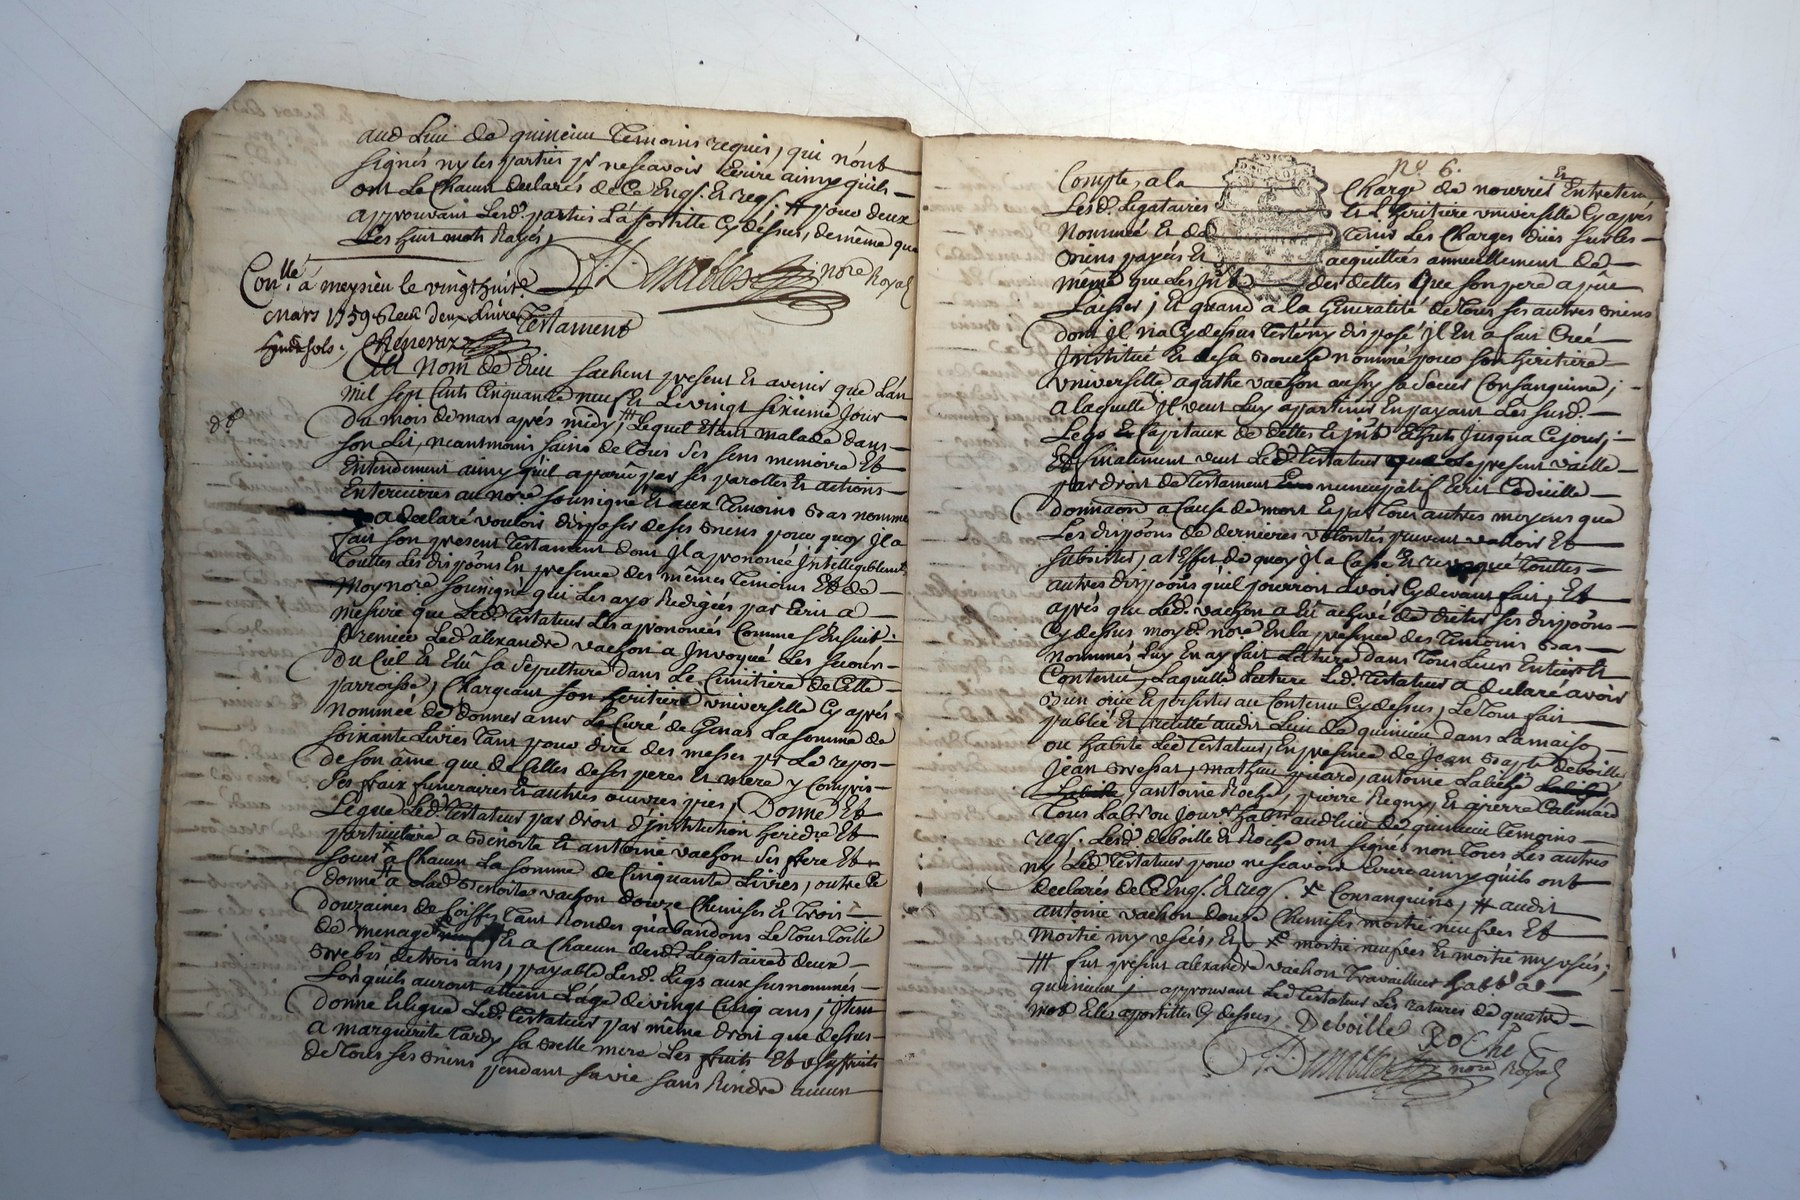 aud Lieu de quinieu Temoins requis, qui n'ont
signés ny les parties pr ne scavoir Ecrire ainsy qu'ils
ont Le Chacun declarés de Ce Enqs. Et reqs; # pour deux
approuvant Lesd. parties L'apostille Cy dessus, de même que
Les huit mots Rayés,
nore Royal
Conllé. à meysieu le vingt huit
mars 1759 Reçu deux Livres
huit sols. Cheneviz
Testament
Au Nom de Dieu sachent present Et avenir que L'an
mil sept Cents Cinquante neuf Et Le vingt sixieme Jour
du mois de mars après midy, ## Lequel Etant malade dans
son Lit, neantmoins sains de tous ses sens memoire Et
Entendement ainsy qu'il apparu par ses parolles Et actions
Enterieures au nore soussigné Et aux Temoins bas nommé
a declaré vouloir disposer de ses biens pour quoy Il a
fait son present Testament dont Il a prononcé Intelligiblement
Touttes Les dispoons En presence des mêmes Temoins Et de
Moy nore soussigné qui Les ay Redigées par Ecrit a
mesure que Led. Testateur Les a prononcées Comme s'Ensuit:
Premier Led. alexandre vachon a Invoqué Les secours
du Ciel Et Elu sa sepulture dans Le Cimitiere de Cette
parroisse, Chargeant son heritiere vniverselle Cy après
Nommée de donner a mr Le Curé de Genas La somme de
soixante Livres Tant pour dire des messes pr Le repos
de son âme que de Celles de ses peres Et mere y Compris
ses fraix funeraires Et autres œuvres pies, Donne Et
Legue Led. Testateur par droit d'institution heredre Et
particuliere a Benoite Et antoine vachon ses frere Et
soeur à Chacun La somme de Cinquante Livres, outre Ce
donne # à Lad. Benoite vachon douze Chemises Et Trois
douzaines de Coiffes Tant Rondes qu'abandons Le Tout Toille
de menage Et a Chacun desd. Legataires deux
Brebis de trois ans, payable Lesd. Legs aux susnommés
Lorsqu'ils auront atteint L'âge de vingt Cinq ans; Item
donne Et legue Led. Testateur par même droit que dessus
a marguerite Tardy sa Belle mere Les fruits Et vsufruits
de Tous ses Biens pendant sa vie sans Rendre aucun
No. 6.
Compte, a la Charge de nourrir Et Entretenir
Lesd. Legataires Et L'heritiere vniverselle Cy après
Nommée Et de Tenir Les Charges dües sur les
Biens payées Et acquittées annuellement de
même que Les Int. des dettes Que son pere a pûe
Laisser; Et quand a la Generalité de Tous ses autres Biens
dont Il n'a Cy dessus Testé ny disposé Il En a fait Creé
Institué Et de sa Bouche nommé pour son heritiere
vniverselle agathe vachon aussy sa soeur Consanguine;
a laquelle Il veut Luy appartenir En payant Les susd.
Legs Et Capitaux de dettes Et Int. Echuts Jusqu'a Ce jour;
Et finalement veut Led. Testateur que Le present vaille
par droit de Testament nuncupatif Ecrit Codicille
donnaon a Cause de mort Et par Tous autres moyens que
Les dispoons de dernieres volontés peuvent valloir Et
subsister, a l'Effet de quoy Il a Cassé Et revoqué Touttes
autres dispoons qu'il pourroit avoir Cy devant fait, Et
après que Led. vachon a Eû achevé de dicter ses dispoons
Cy dessus moyd. nore En la presence des Temoins Bas
nommés Luy En ay fait Lecture dans Tout Leur Entier Et
Contenu, Laquelle Lecture Led. Testateur a declaré avoir
Bien ouie Et persister au Contenu Cy dessus, Le Tout fait
publié Et Recitté audit Lieu de quinieu dans La maison
ou habite Led. Testateur, En presence de Jean Bapte Deboille
Jean Bressat, mathieu picard, antoine Labiche
antoine Roche, pierre Regny, Et pierre Calimard
Tous Labrs ou Jourrs habts aud. Lieu de quinieu Temoins
reqs. Lesd. deboille Et Roche ont signé non Tous Les autres
ny Led. Testateur pour ne scavoir Ecrire ainsy qu'ils ont
declarés de Ce Enqs. Et reqs. + Consanguins, # audit
antoine vachon douze Chemises moitié neufves Et
moitié my vsées, Et + moitié neufves Et moitié my vsés;
## fut present alexandre vachon Travailleur habt à
quinieu, approuvant Led. Testateur Les ratures de quatre
mots Et Les apostilles Cy dessus, Deboille ROChe
nore Royal